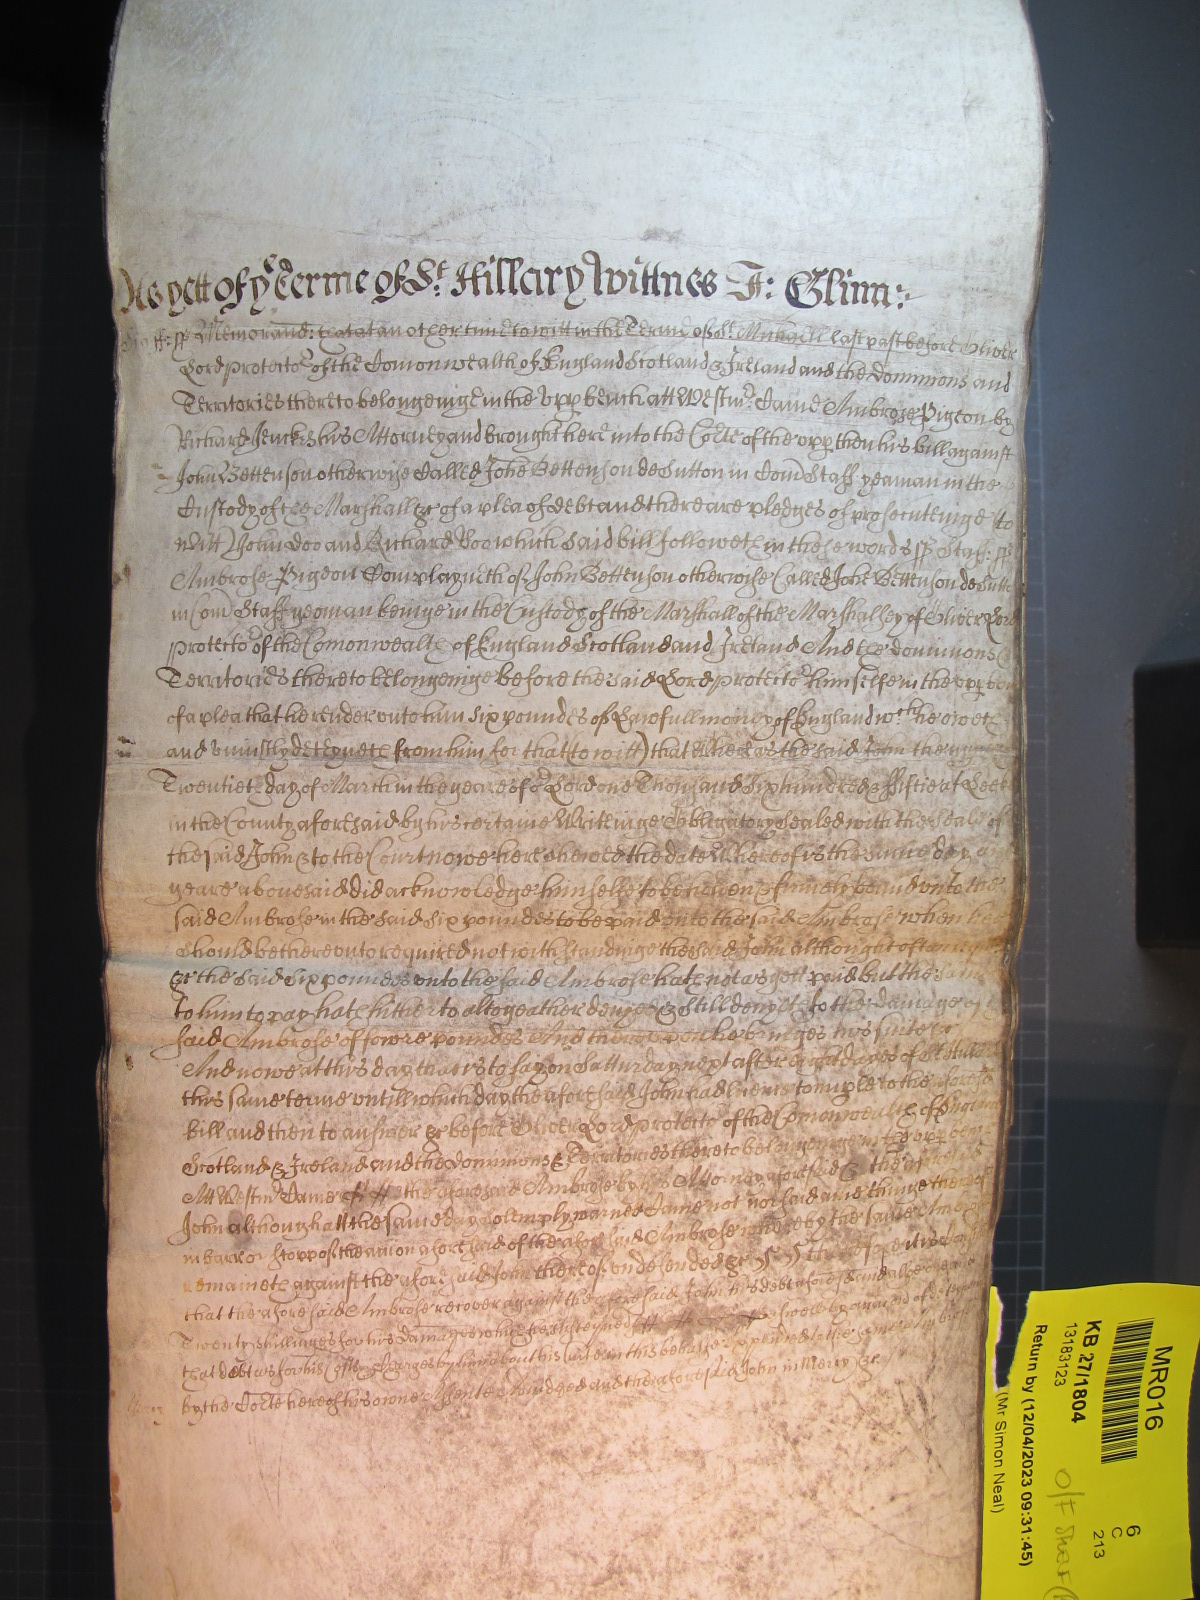 As yett of ye Terme of St. Hillary Wittnes J: Glinn:
Staff: ss Memorand: that at an other time to witt in the Terme of St. Michaell last past before Oliver
Lord protector of the Comonwealth of England Scotland & Ireland and the dominions and
Territories thereto belongeinge in the upp bench att Westmr. Came Ambrose Pigeon by
Richard Jenckes his Attorney and brought here into the Corte of the upp then his bill against
John Bettenson otherwise Called John Bettenson de Sutton in Com Staff yeoman in the
Custody of the Marshall &c of a plea of debt and there are pledges of prosecuteinge to
witt John Doo and Richard Roo which said bill followeth in these words ss Staff: ss
Ambrose Pigeon Complayneth of John Bettenson otherwise Called John Bettenson de Sutt
in Com Staff yeoman beinge in the Custody of the Marshall of the Marshallsey of Oliver Lord
protector of the Comonwealth of England Scotland and Ireland And the dominions
Territories thereto belongeinge before the said Lord protector himselfe in the upp ben
of a plea that he render unto him six poundes of Lawfull money of England wch he oweth
and uniustly deteyneth from him for that (to witt) that Whereas the said John the
Twentieth day of March in the yeare of or Lord one Thousand Six hundred & Fiftie at Leeke
in the County aforesaid by his certaine Writeinge Obligatory Sealed with the Seale of
the said John & to the Court nowe here shewed the date Whereof is the same day a
yeare abovesaid did acknowledge himselfe to be houlden & firmely bound unto the
said Ambrose in the said Six poundes to be paid unto the said Ambrose when hee
should be thereunto required not withstandinge the said John although often
&c the said Six poundes unto the said Ambrose hath not as yett paid but the same
to him to pay hath hitherto altogeather denyed & still denyeth to the damage of the
said Ambrose of fowre poundes And thereupon he bringes his suite &c
And nowe at this day that is to say on Satturday next after eight dayes of St Hillary
this same terme untill which day the aforesaid John had licence to imple to the aforesd
bill and then to answer &c before Oliver Lord protector of the Comonwealth of England
Scotland & Ireland and the dominions & Territories thereto belongeinge in the upp bench
Att Westmr Came the aforesaid Ambrose by his Attorney aforesaid & the aforesaid
John although att the same day solemply warned Came not nor said any thinge thereof
in barr or stopp of the action aforesaid of the aforesaid Ambrose whereby the same Ambrose
remaineth against the aforesaid John thereof undefended &c Therefore it is
that the aforesaid Ambrose recover against the aforesaid John his debt aforesaid and alsoe
Twenty shillinges for his damages which he susteyned as well by
that debt as for his Costes & Charges by him about his suite in this behalfe expended to the same Ambrose
by the Corte here of his owne Assente Adiudged and the aforesaid John in Mercy &c
MR016
KB 27/1804
13183123
Return by (12/04/2023 09:31:45)
(Mr Simon Neal)
6
C
213